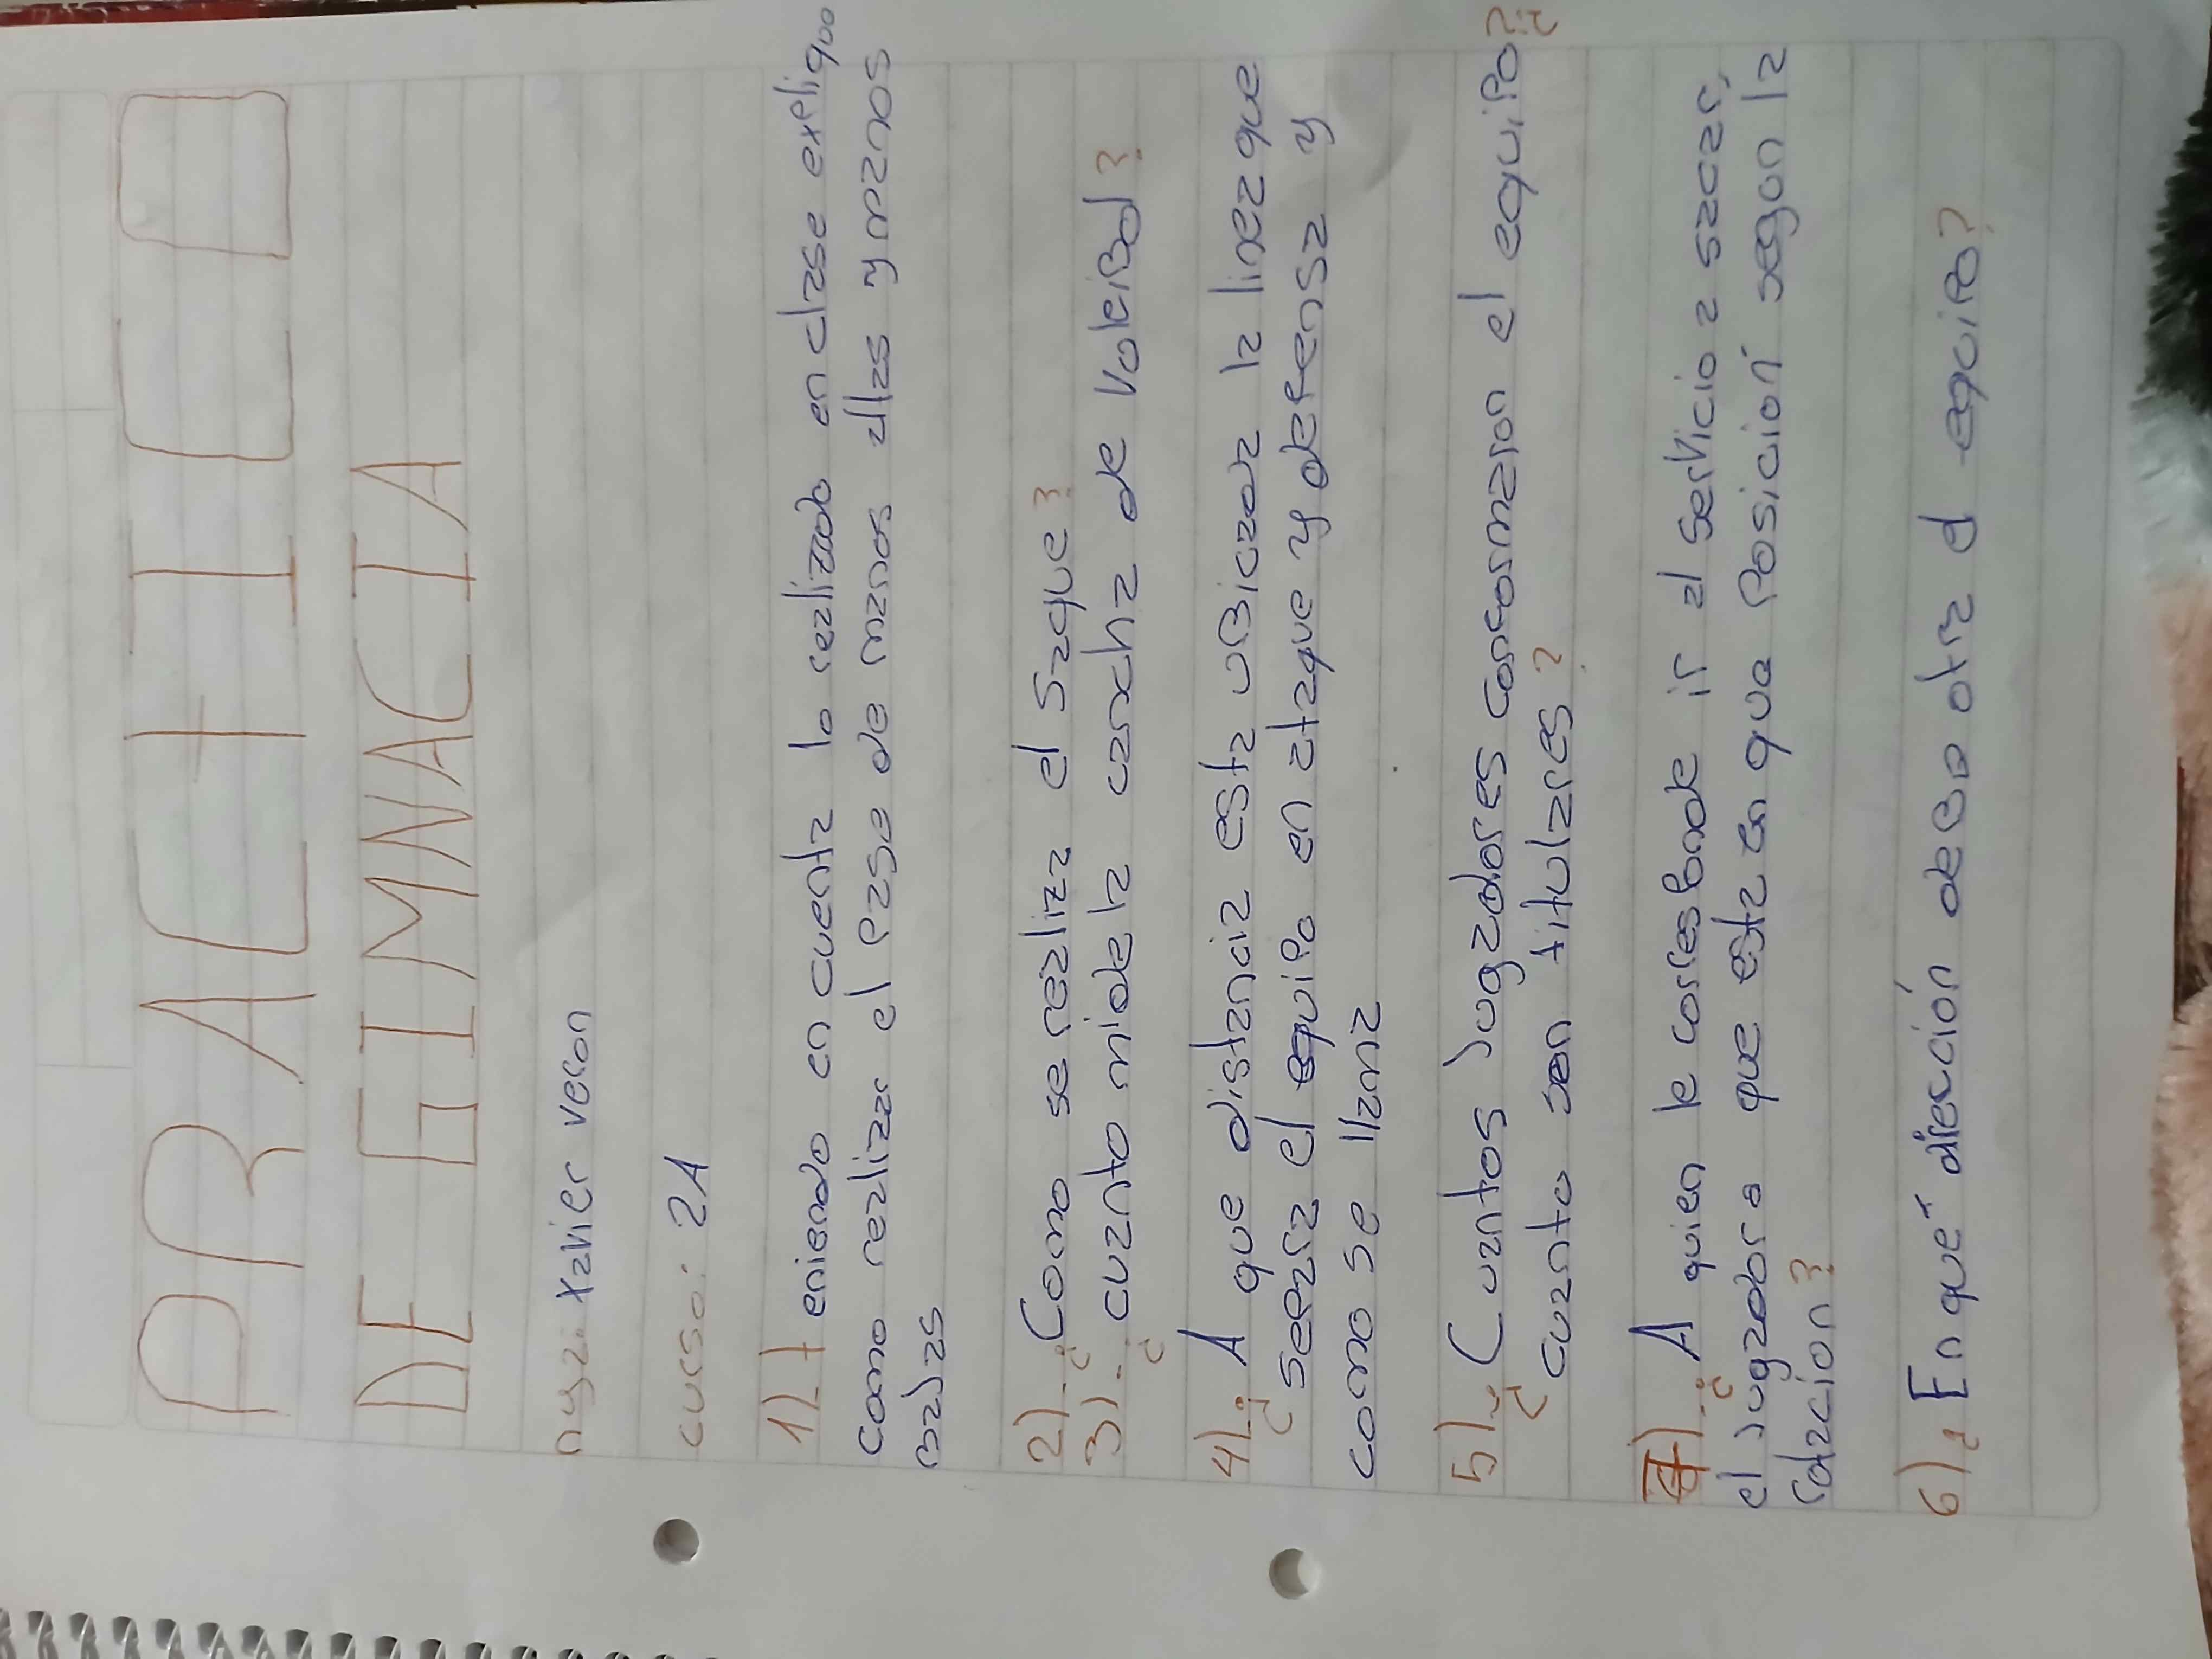 PRACtICO
DE GIMNACIA
nya: xavier veron
curso: 2A
1)- teniendo en cuenta lo realizado en clase explique
como realizar el pase de manos altas y manos
bajas
2)-¿Como se realiza el saque?
3)-¿cuanto mide la cancha de voleibol?
4)-¿A que distancia esta ubicada la linea que
separa el equipo en ataque y defensa y
como se llama
5)¿Cuantos jugadores conforman el equipo?¿
cuanto son titulares?
-¿A quien le corresponde ir al servicio a sacar,
el jugador que esta en que posición segun la
rotacion?
6)¿En qué dirección debe rotar el equipo?